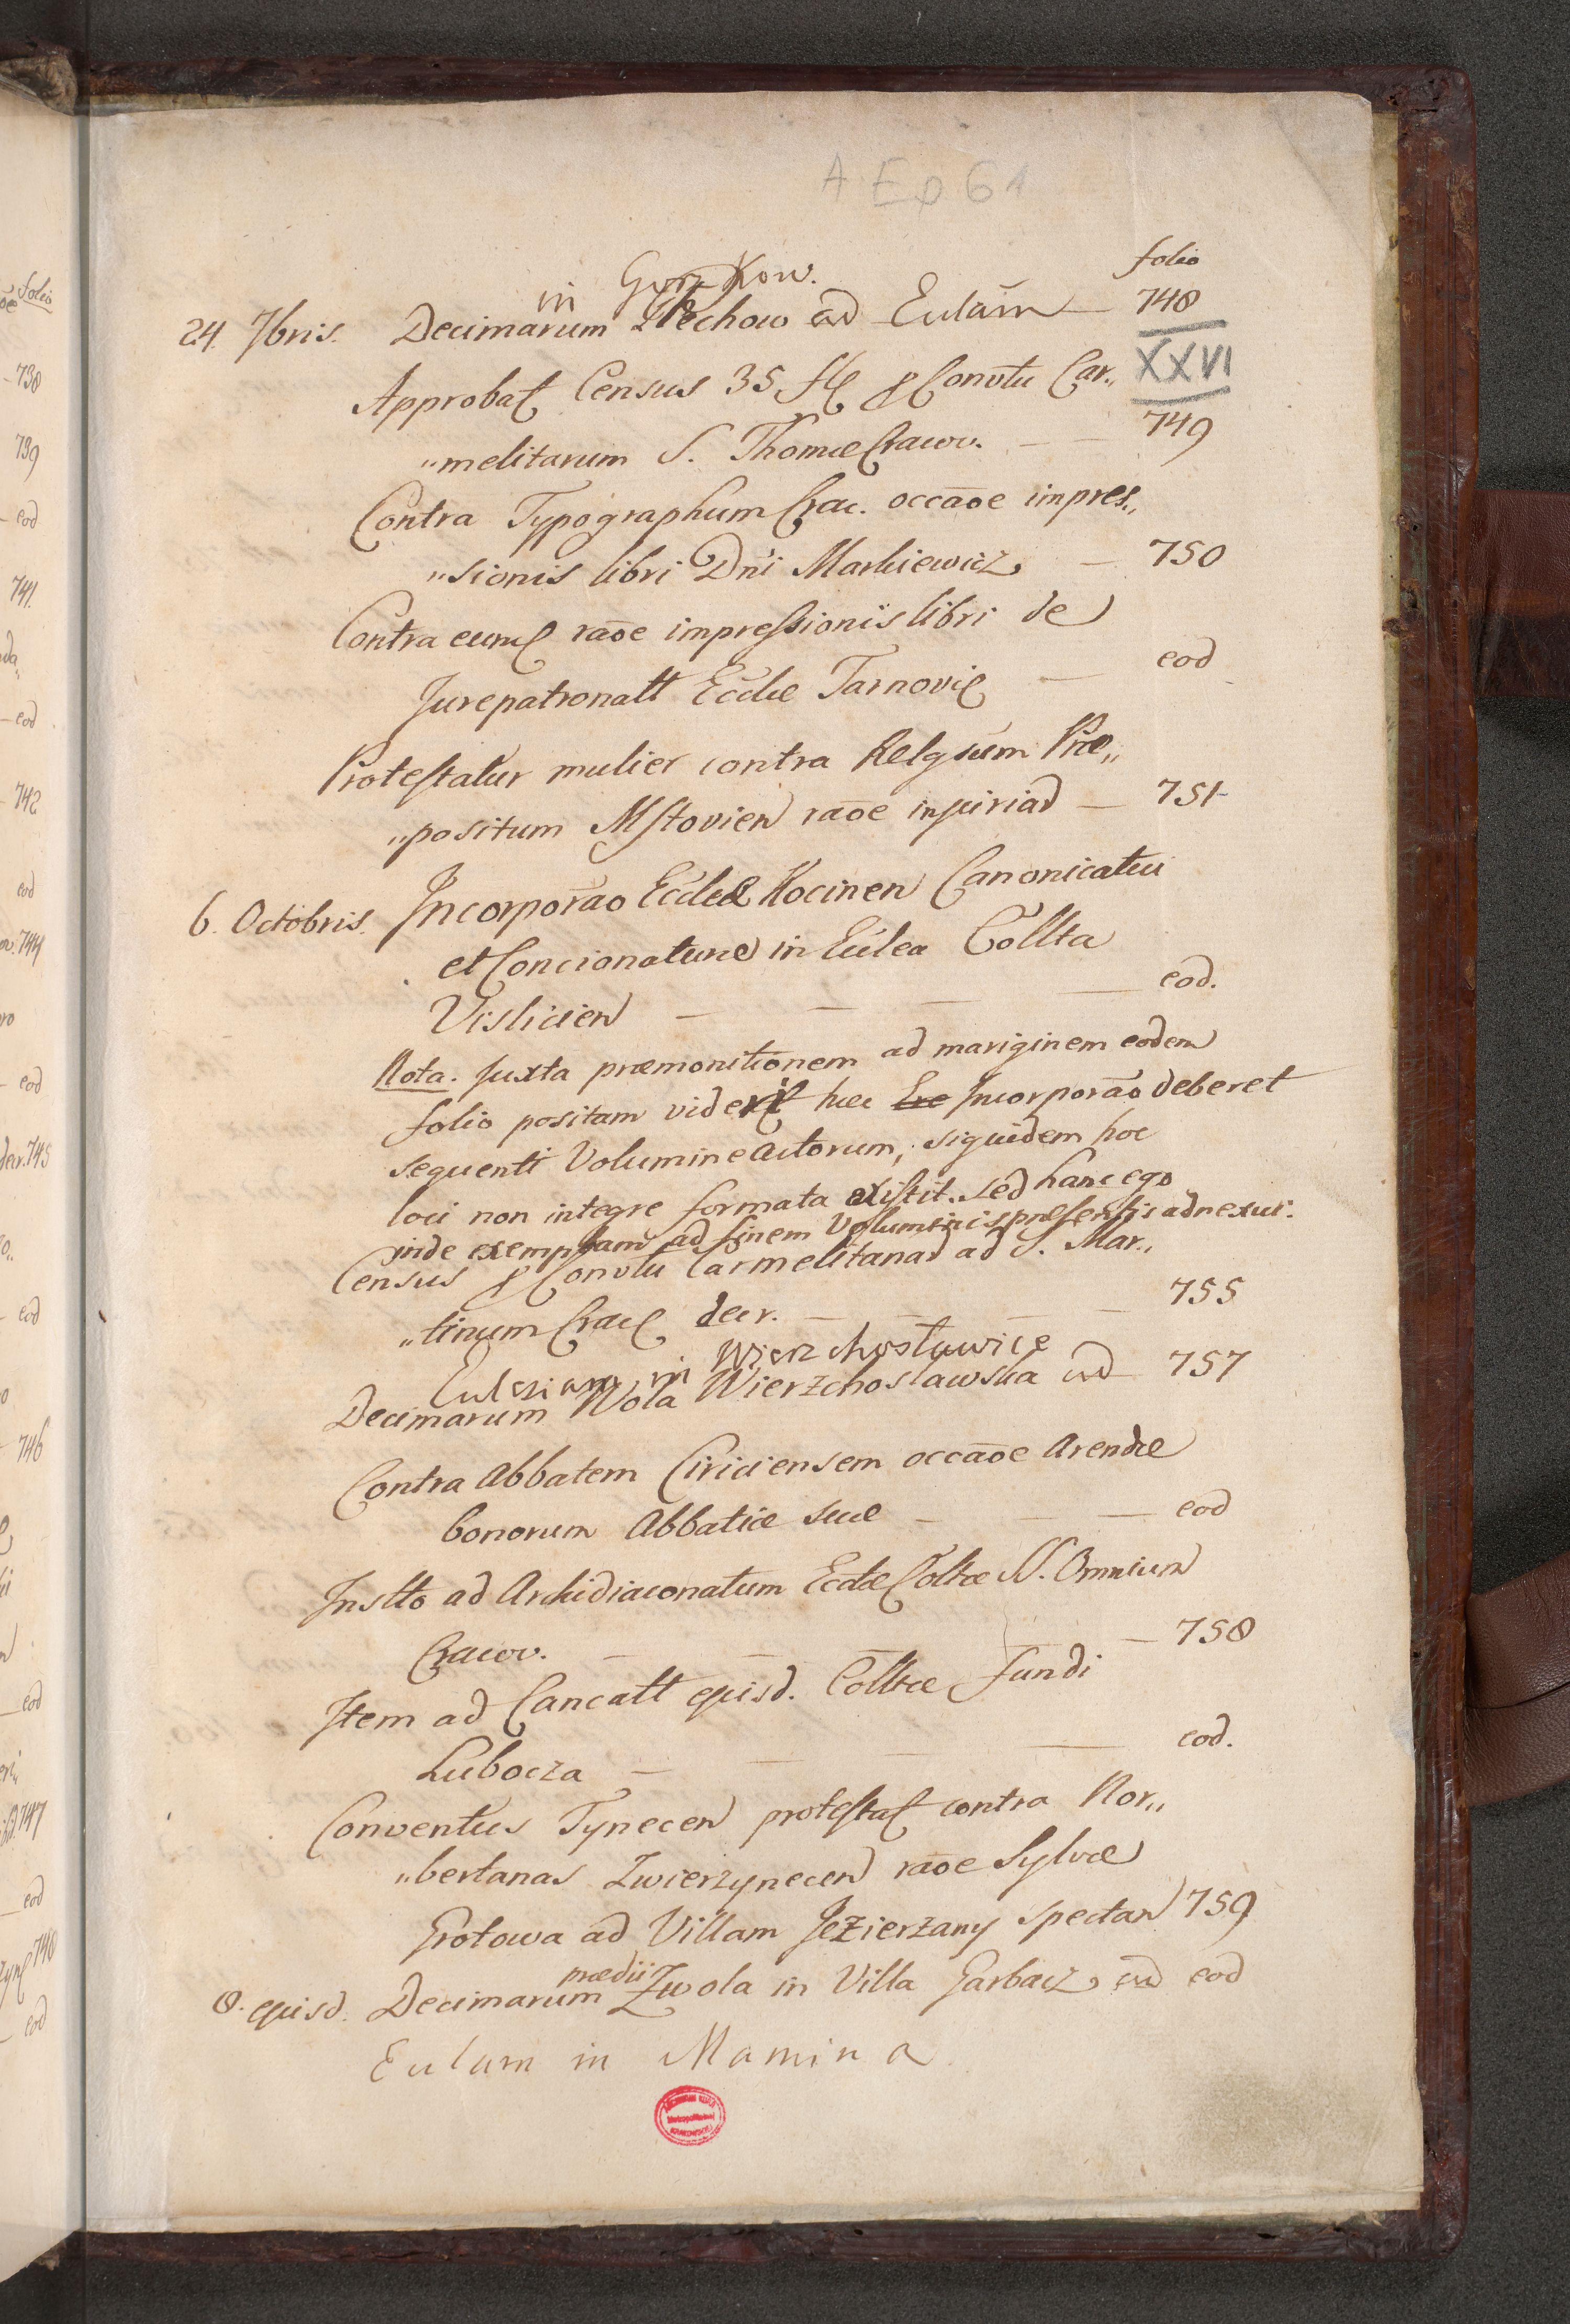 A Ep 61
folio
in Gorzkow.
24. 7bris. Decimarum Lechow ad Eulam — 748
XXVI
Approbat Census 35 fl p Convtu Car„
„melitarum S. Thomæ Cracov. — — 749
Contra Typographum Crac. occaoe impres„
„sionis libri Dni Markiewicz — 750
Contra eund raoe impressionis libri de
Jurepatronatt Eccliæ Tarnovie — eod
Protestatur mulier contra Relgsum Præ„
„positum Mstovien raoe injuriad — 751
6. Octobris. Incorporao Ecclæ Kocinen Canonicatui
et Concionaturæ in Eulea Collta
Vislicien — — — — eod.
Nota. juxta præmonitionem ad mariginem eodem
folio positam videri hæc Ere Incorporao deberet
sequenti Volumine actorum, siquidem hoc
loci non integre formata existit. sed hanc ego
inde exemptam ad finem Voluminis præsentis adnexui.
Census p Convtu Carmelitanad ad S. Mar„
„tinum Crac decr. — — — — 755
Eulesiam in Wierzchosławice
Decimarum Wola Wierzchoslawska ad 757
Contra Abbatem Ciriciensem occaoe Arendæ
bonorum Abbatiæ suæ — — — eod
Instto ad Archidiaconatum Ecclæ Coltæ SS. Omnium
Cracov. — — — 758
Item ad Cancatt ejusd. Colltæ fundi
Lubocza — — — — eod.
Conventus Tynecen protestat contra Nor„
„bertanas Zwierzynecen raoe Sylvæ
Grotowa ad Villam Jezierzany spectan 759
prædii
8. ejusd. Decimarum Zwola in Villa Garbacz ad eod
Eulam in Mamina